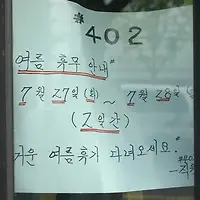 #402
여름 휴무 안내"
7월 27일(화) ~ 7월 28일
(2일간)
거운 여름휴가 다녀오세요."